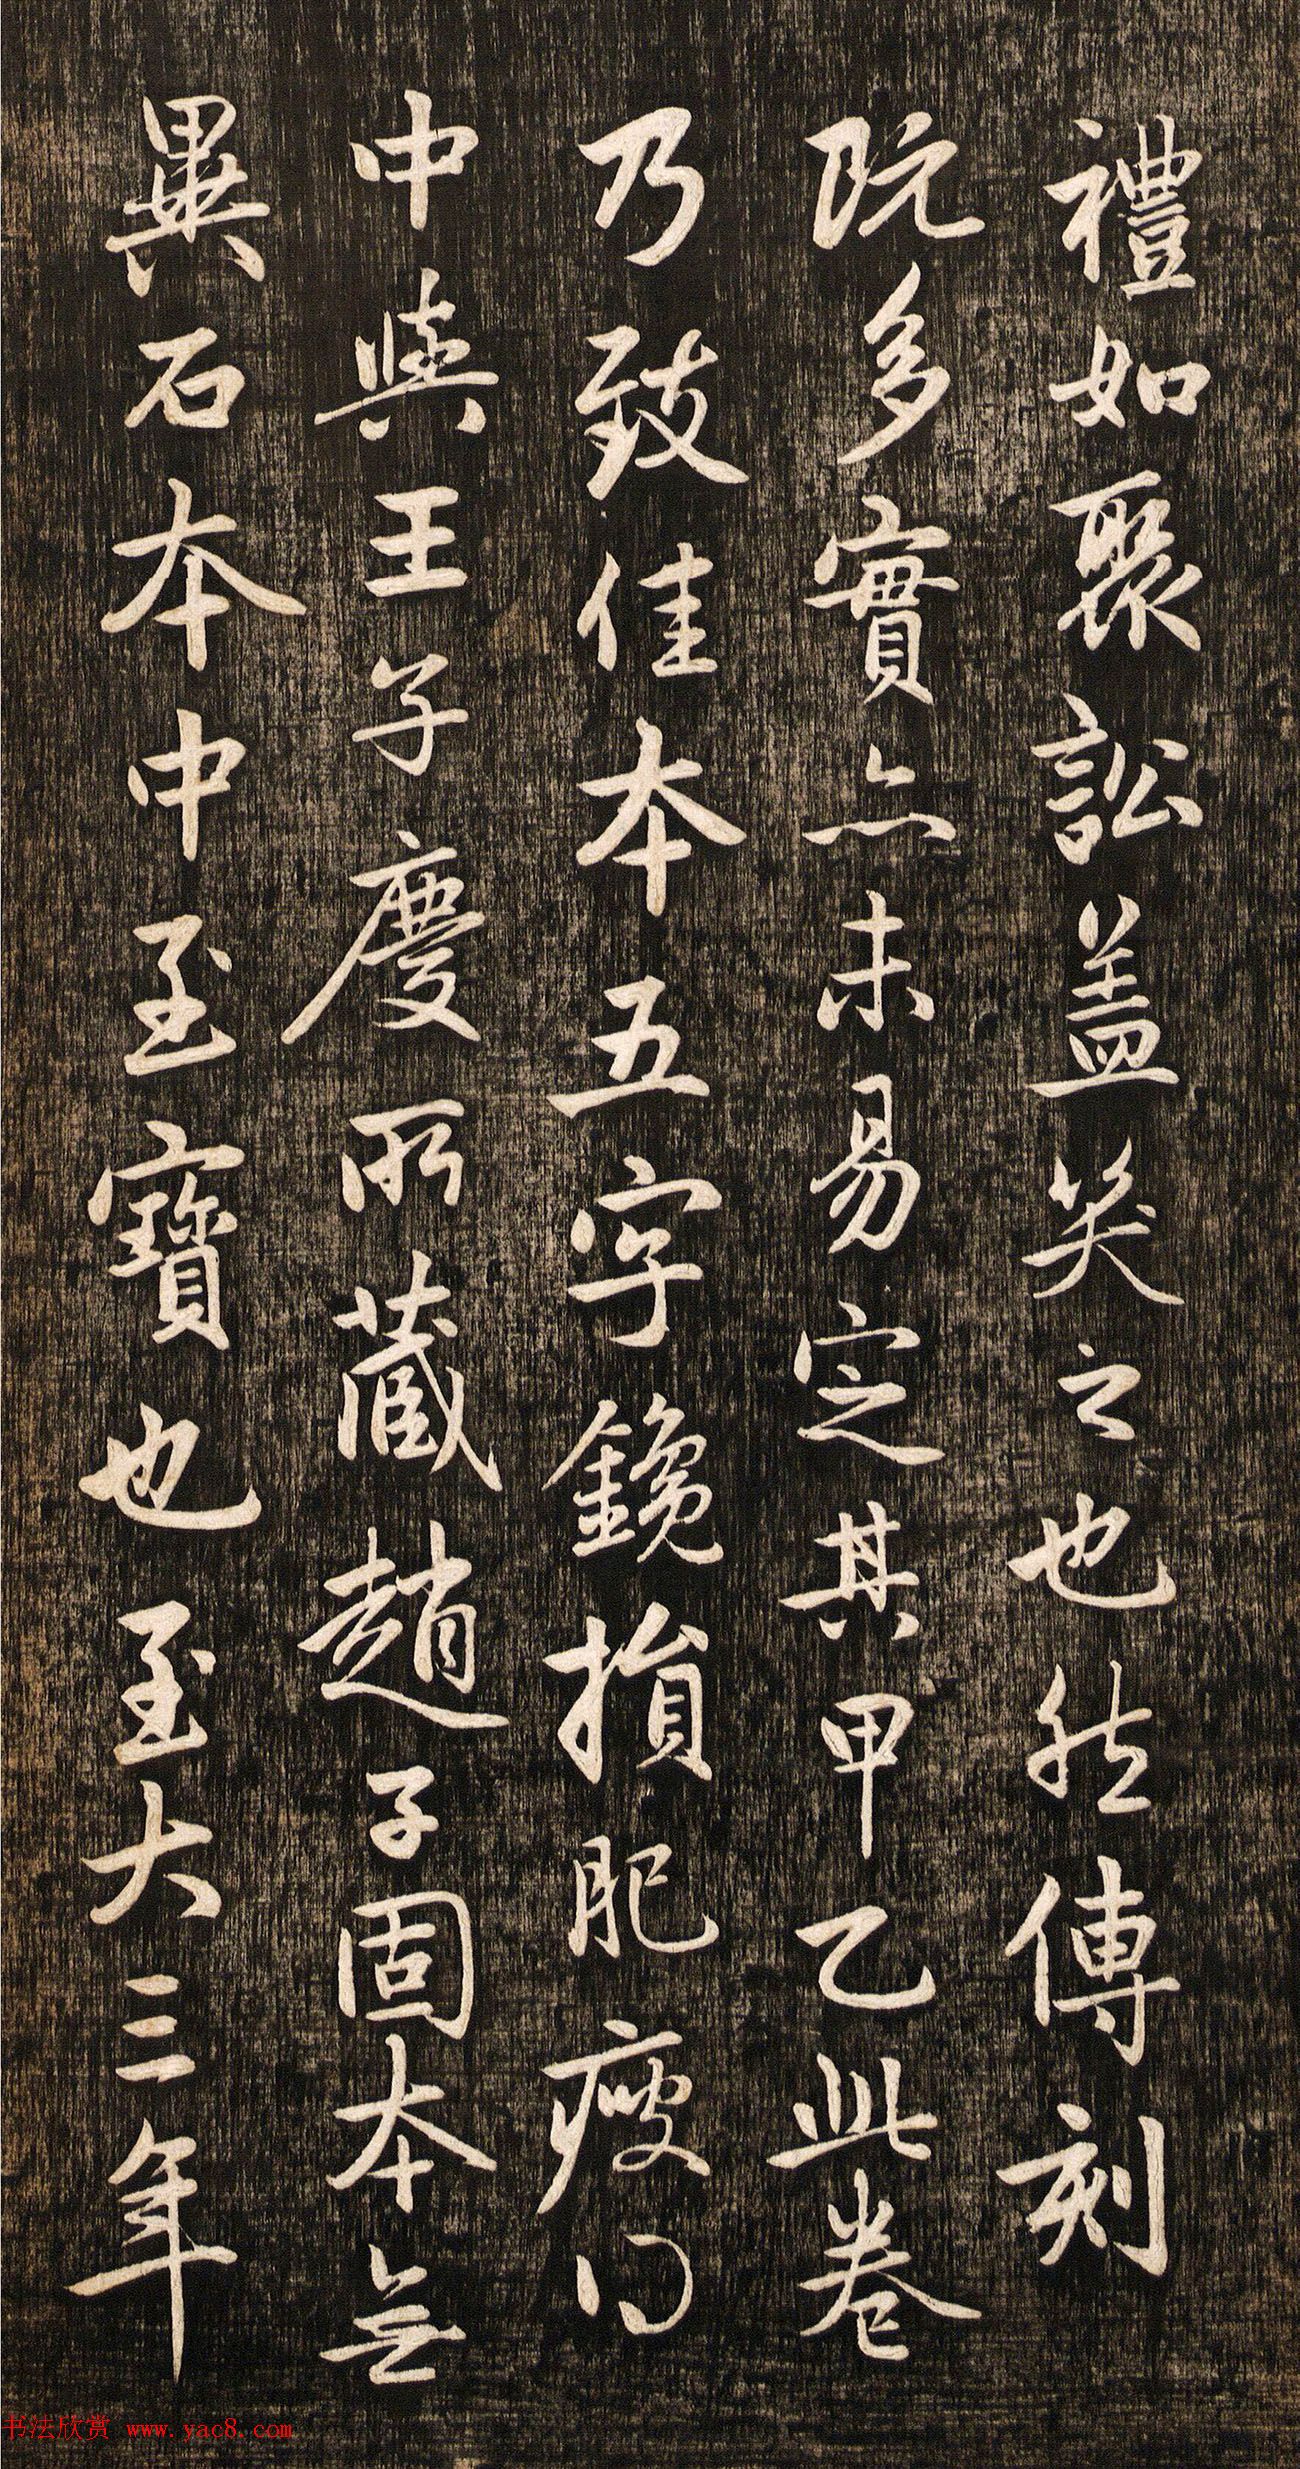 禮如聚訟蓋笑之也然傳刻
既多實亦未易定其甲乙此卷
乃致佳本五字鑱損肥瘦得
中與王子慶所藏趙子固本無
異石本中至寶也至大三年
书法欣赏 www.yac8.com